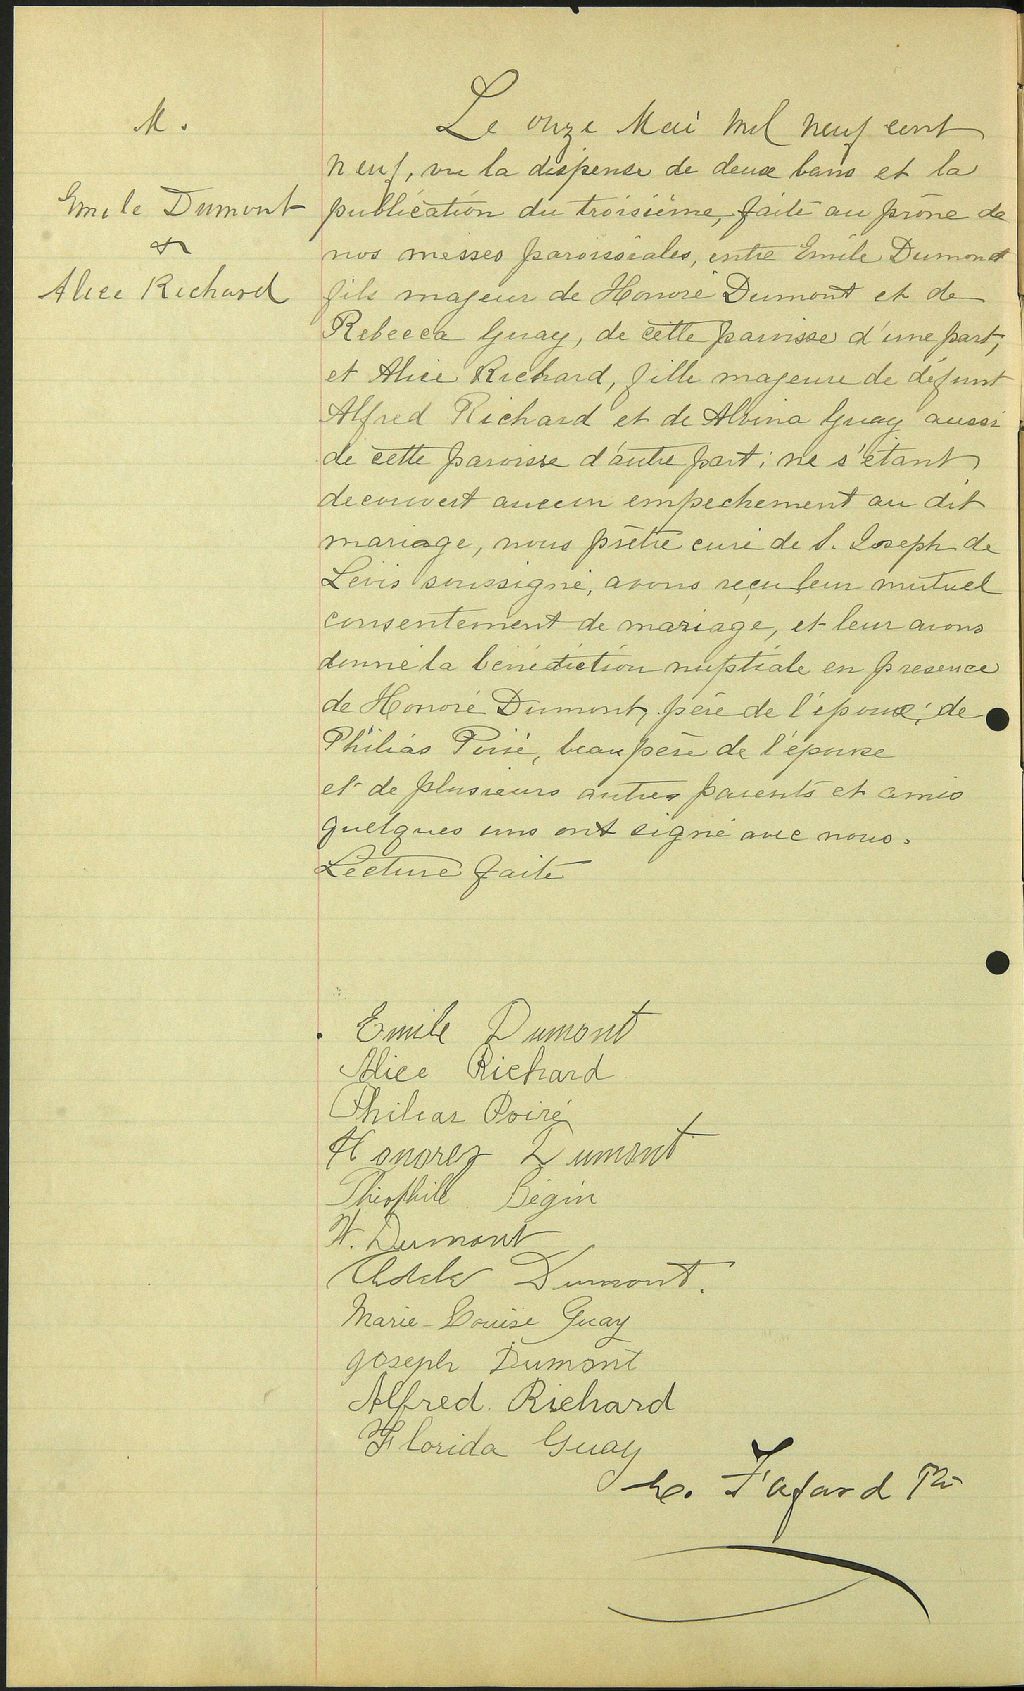 M.
Emile Dumont
&
Alice Richard
Le onze Mai mil neuf cent
neuf, vu la dispense de deux bans et la
publication du troisième, faite au prône de
nos messes paroissiales, entre Emile Dumont
fils majeur de Honoré Dumont et de
Rebecca Guay, de cette paroisse d'une part,
et Alice Richard, fille majeure de défunt
Alfred Richard et de Alvina Guay aussi
de cette paroisse d'autre part; ne s'étant
decouvert aucun empechement au dit
mariage, nous prêtre curé de S. Joseph de
Lévis soussigné, avons reçu leur mutuel
consentement de mariage, et leur avons
donné la bénédiction nuptiale en presence
de Honoré Dumont, père de l'époux; de
Philias Poiré, beau père de l'épouse
et de plusieurs autres parents et amis
quelques uns ont signé avec nous.
Lecture faite
Emile Dumont
Alice Richard
Philias Poiré
Honorez Dumont
Théophile Bégin
Dumont
Adela Dumont.
Marie-Louise Guay
Joseph Dumont
Alfred Richard
Florida Guay
Fafard Ptre